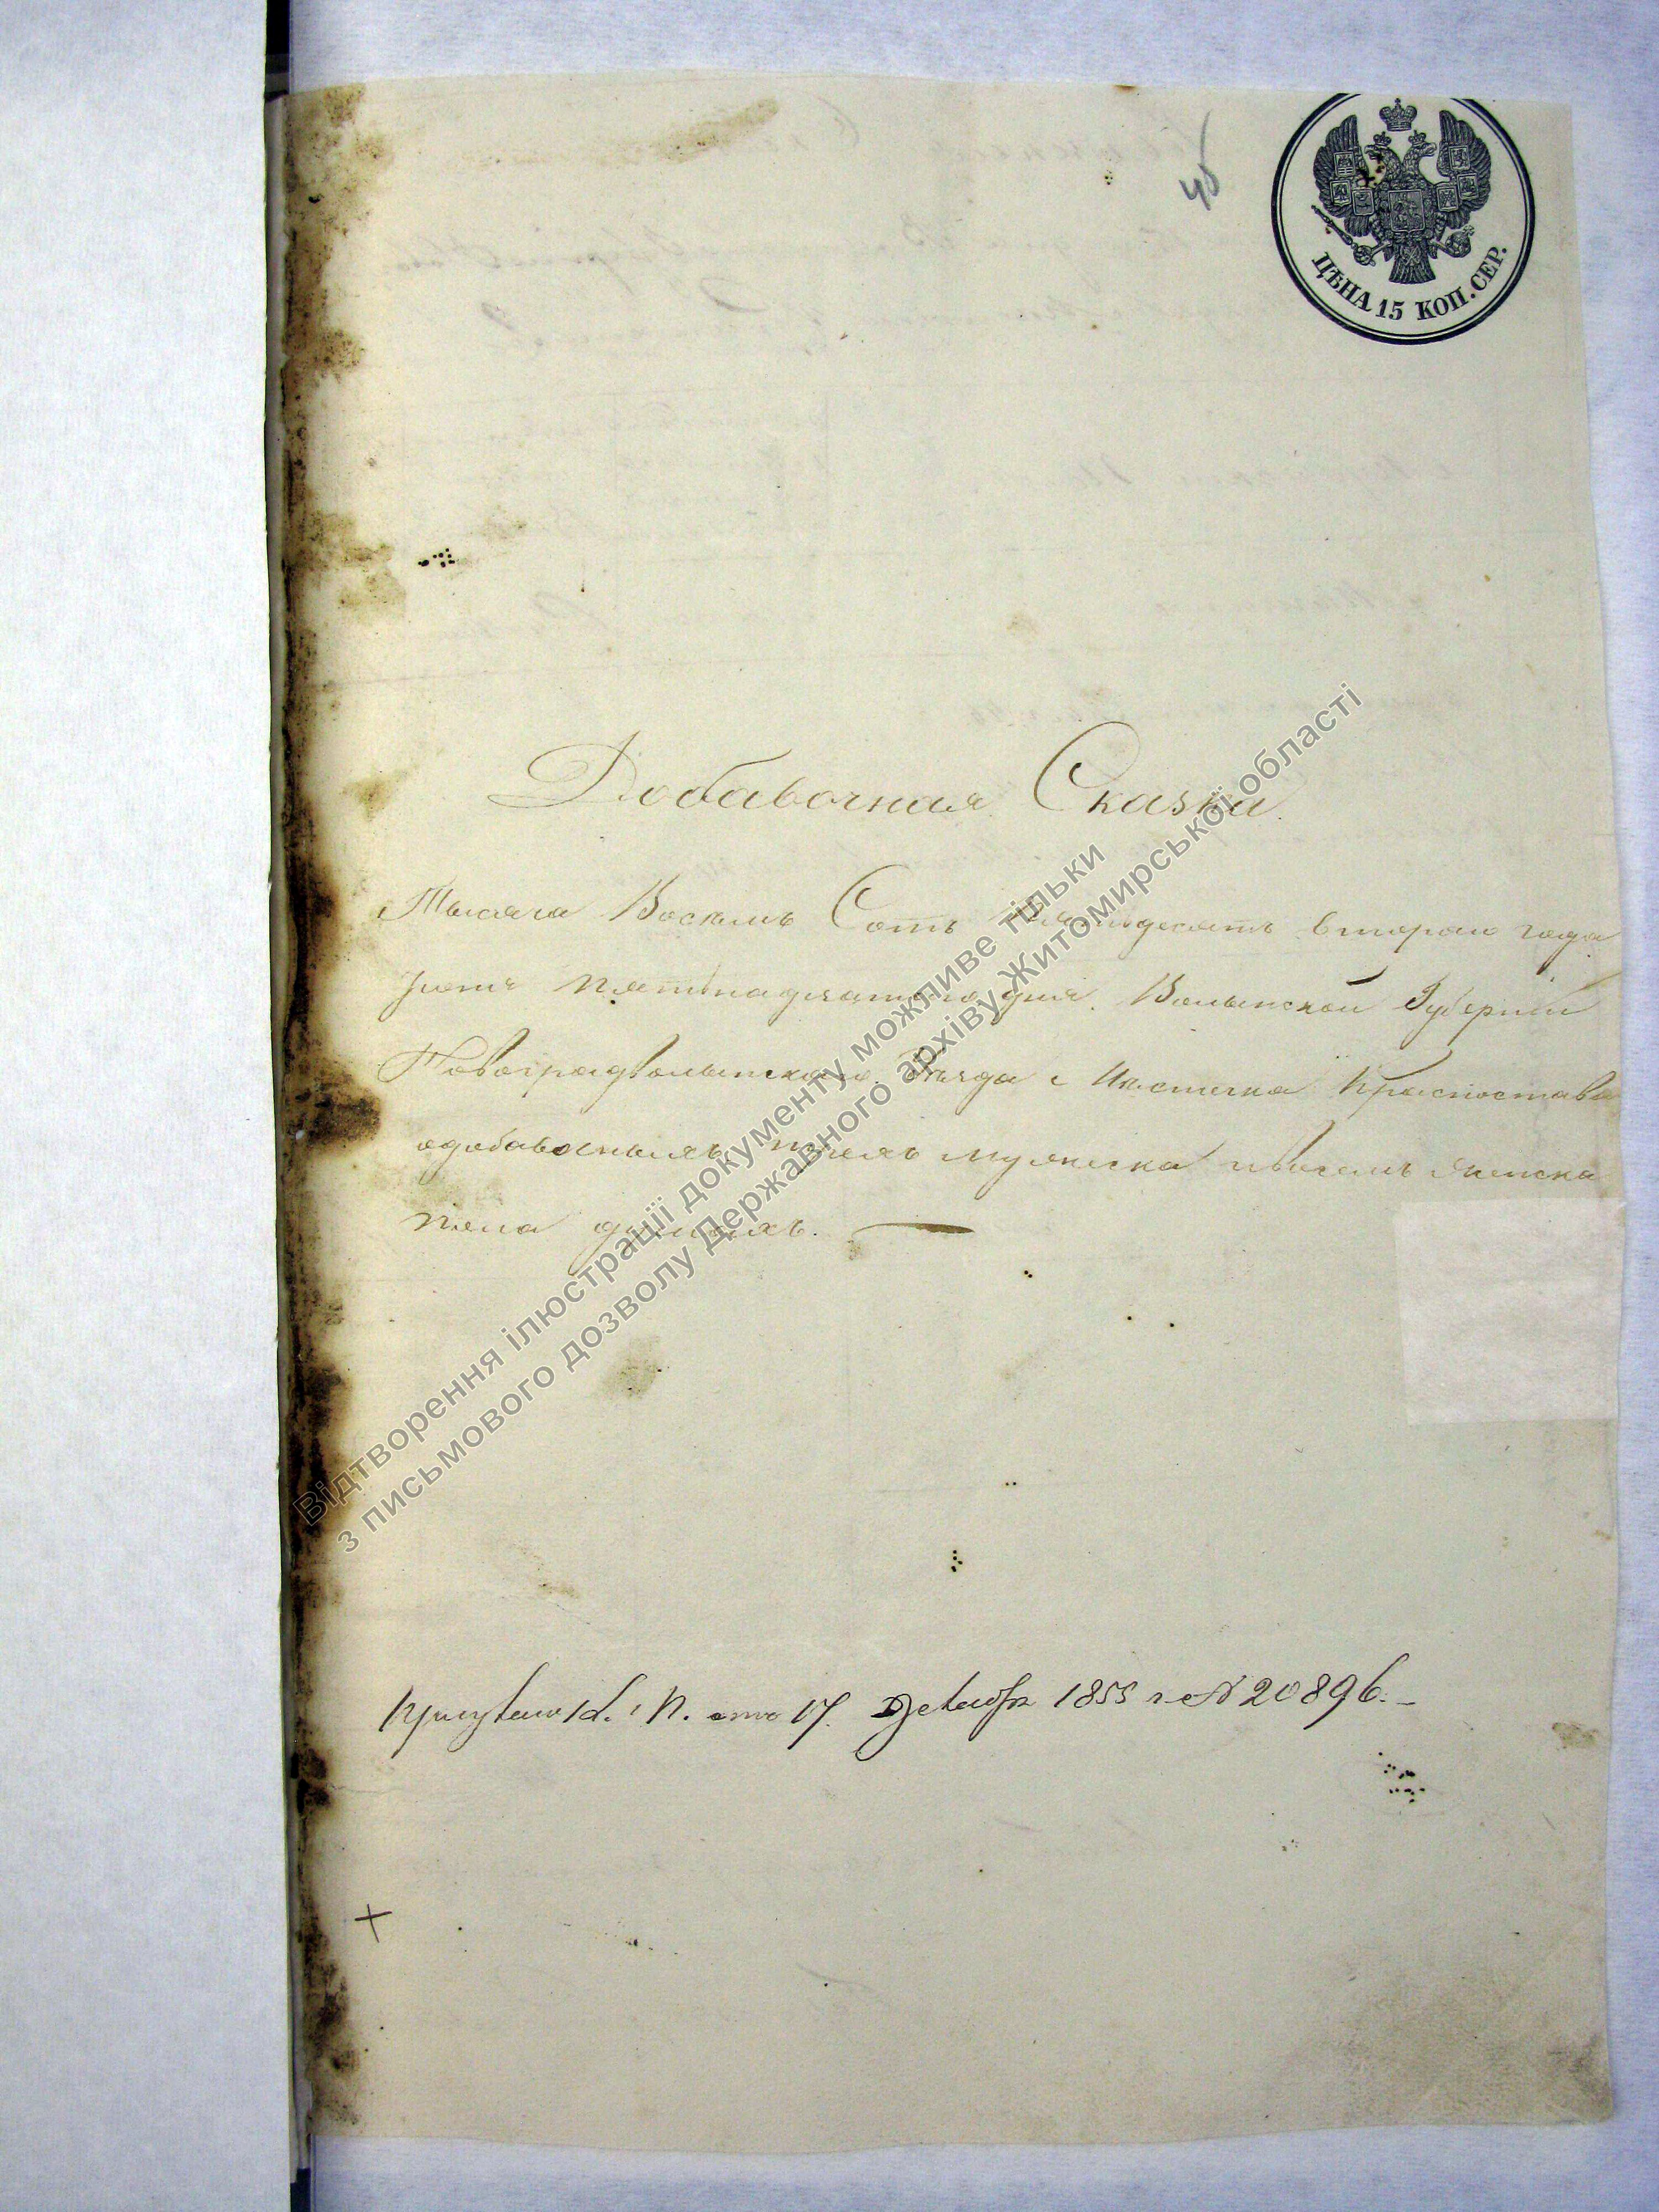 48
ЦѢНА 15 КОП. СЕР.
Добавочная Сказка.
Тысяча Восемь Сотъ Пятьдесятъ втораго года
пятнадцатого дня. Волынской Губернiи
Новоградволынскаго Уѣзда Мѣстечка Красностава
одобавочныхъ мужеска ивосемь женска
пола душахъ.
отъ 17. Декабря 1855 г. № 20896.
Відтворення ілюстрації документу можливе тільки
з письмового дозволу Державного архіву Житомирської області